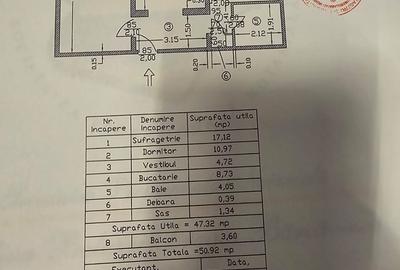 3
7
5
85
2,10
3.15
1.50
2.12
1.91
85
2,00
0.15
0.20
0.10
6
Nr. Incapere Denumire Incapere Suprafata utila (mp)
1 Sufragetrie 17,12
2 Dormitor 10,97
3 Vestibul 4,72
4 Bucatarie 8,73
5 Baie 4,05
6 Debara 0,39
7 Sas 1,34
Suprafata Utila = 47.32 mp
8 Balcon 3,60
Suprafata Totala =50.92 mp
Executant, Data,